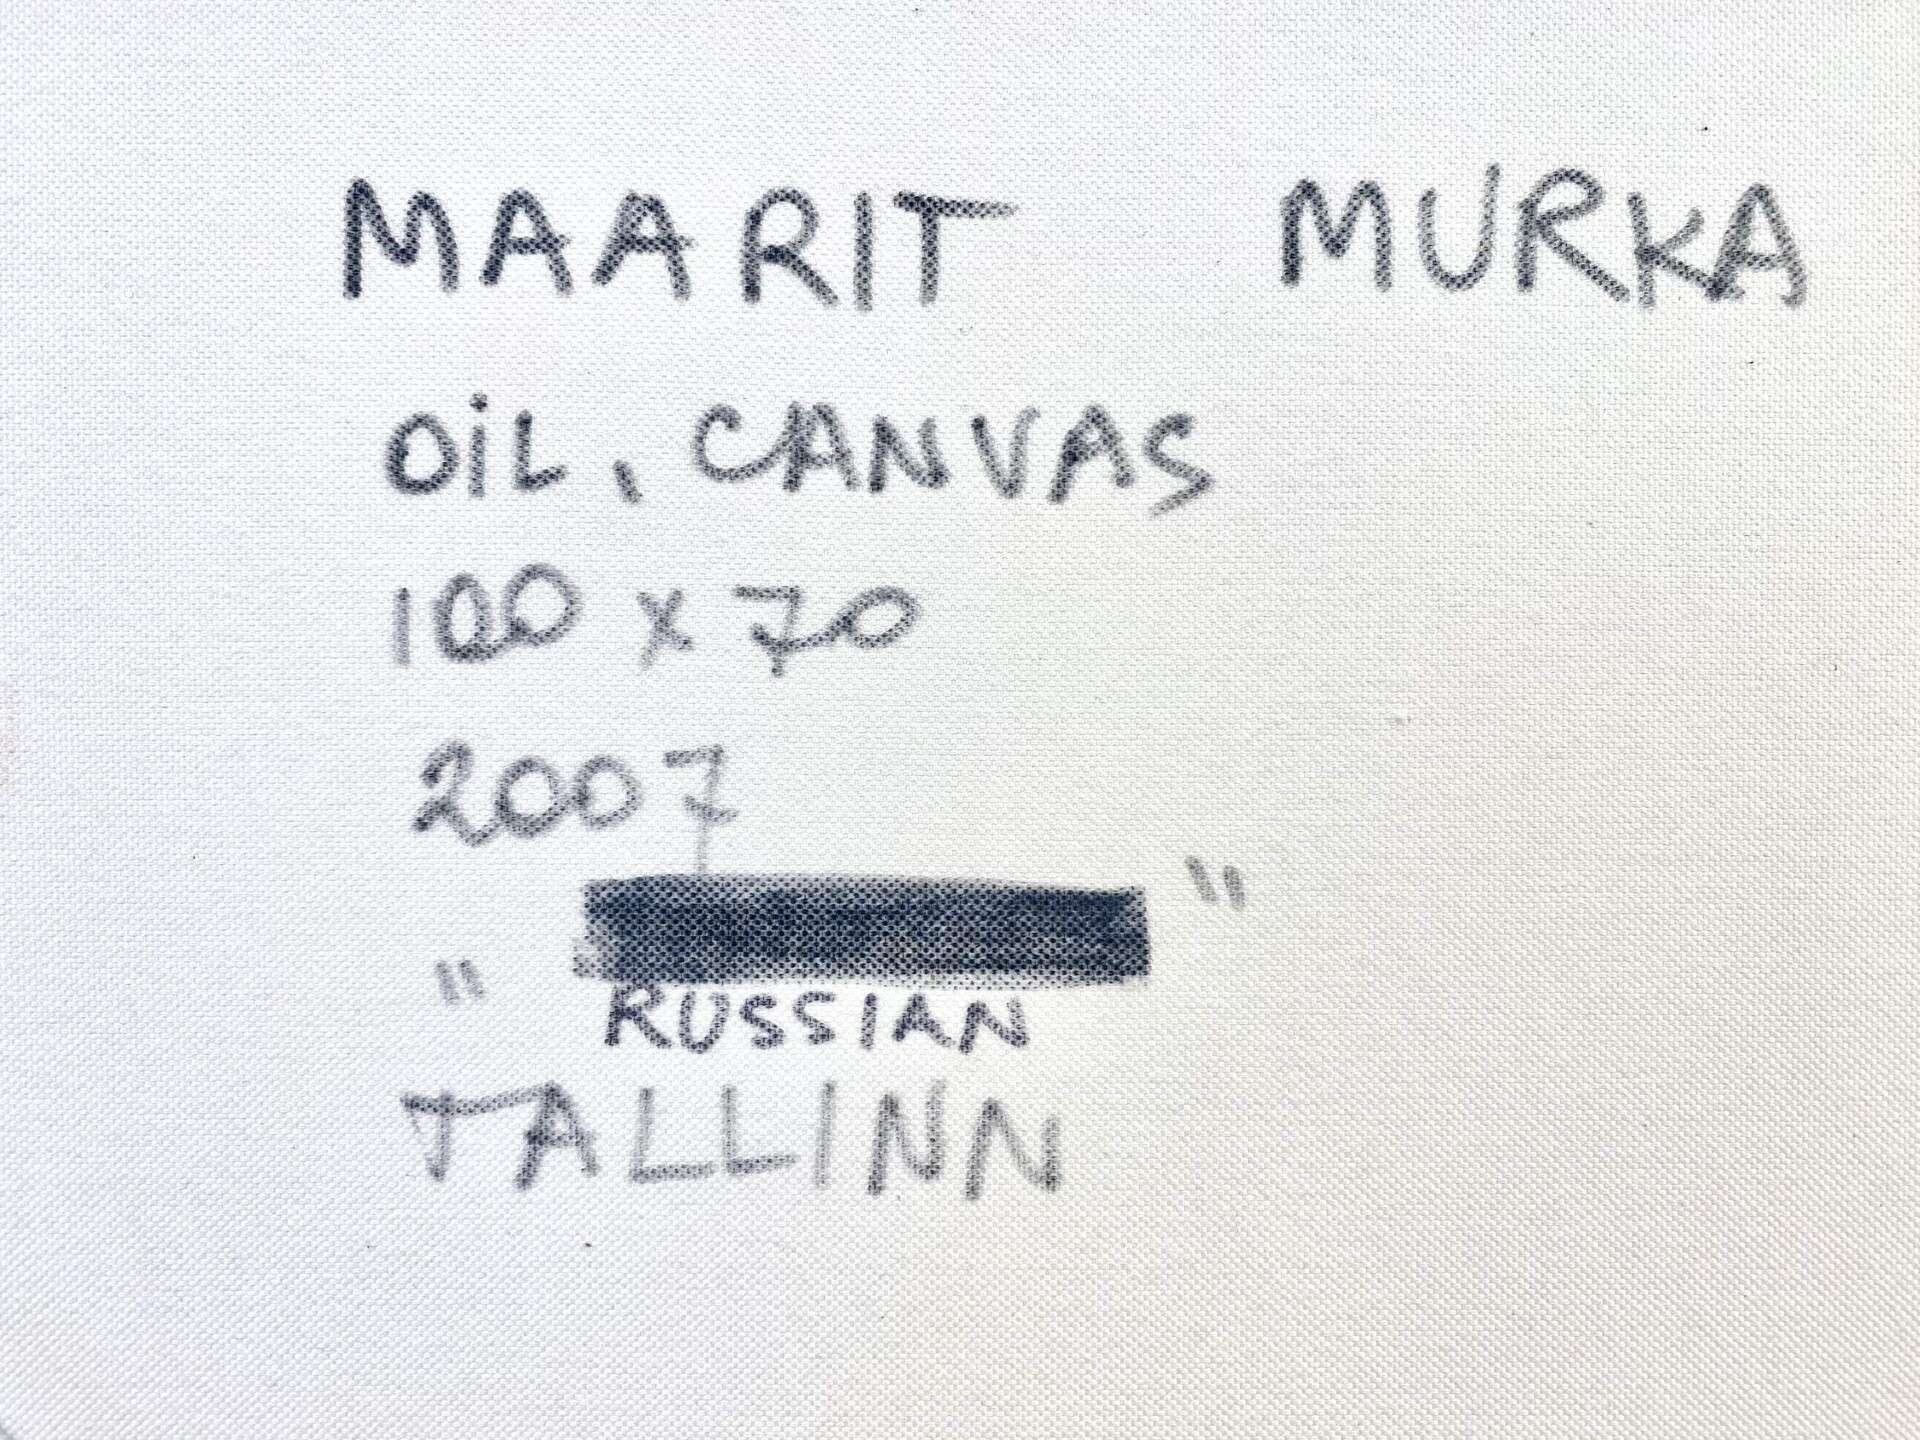 MAARIT MURKA
OiL, CANVAS
100 x 70
2007
" "
RUSSIAN
TALLINN